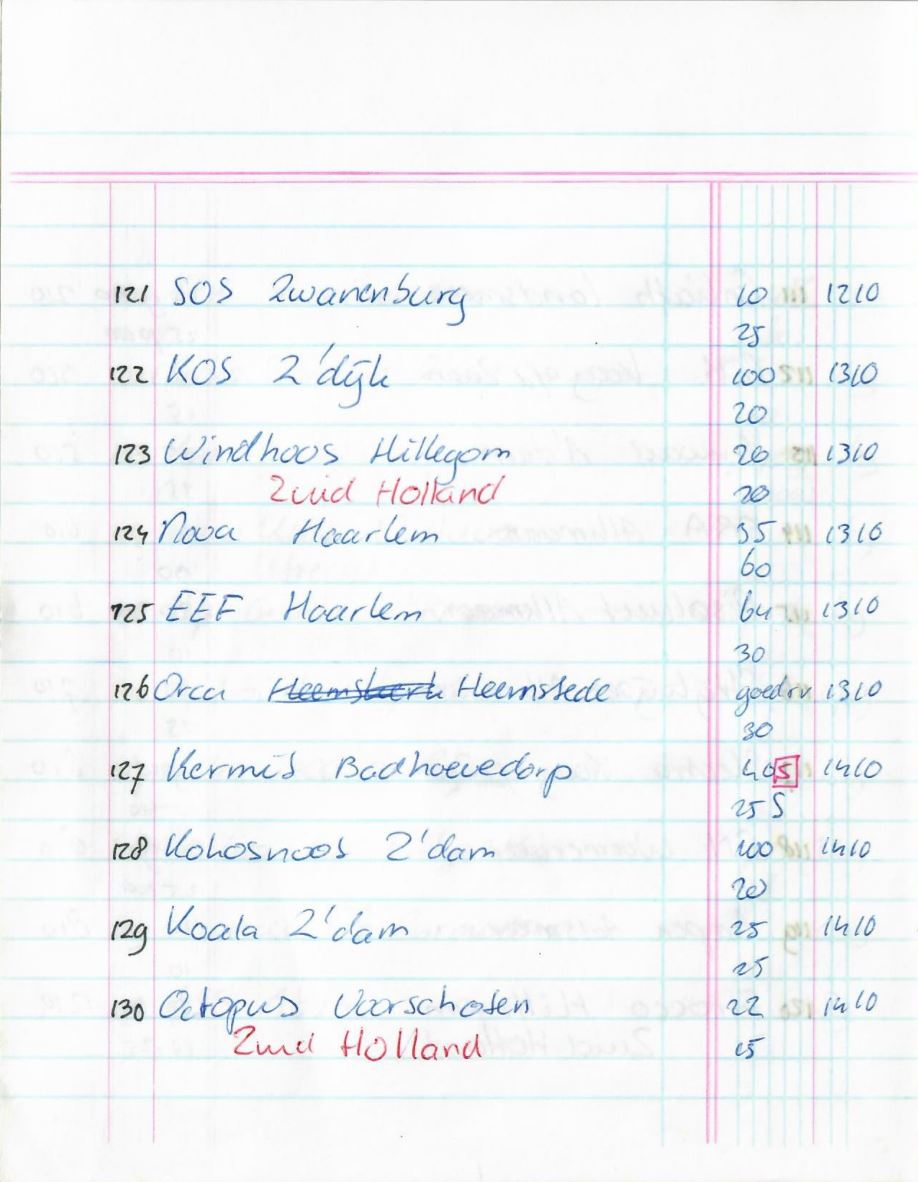 121 SOS Zwanenburg 10 1210
25
122 KOS Z'dijk 100 1310
20
123 Windhoos Hillegom 20 1310
Zuid Holland 20
124 Nova Haarlem 35 1310
60
125 EEF Haarlem 64 1310
30
126 Orca Heemskerk Heemstede goedrv 1310
30
127 Kermis Badhoevedorp 40 S 1410
25 S
128 Kokosnoos Z'dam 100 1410
20
129 Koala Z'dam 25 1410
25
130 Octopus Voorschoten 22 1410
Zuid Holland 15